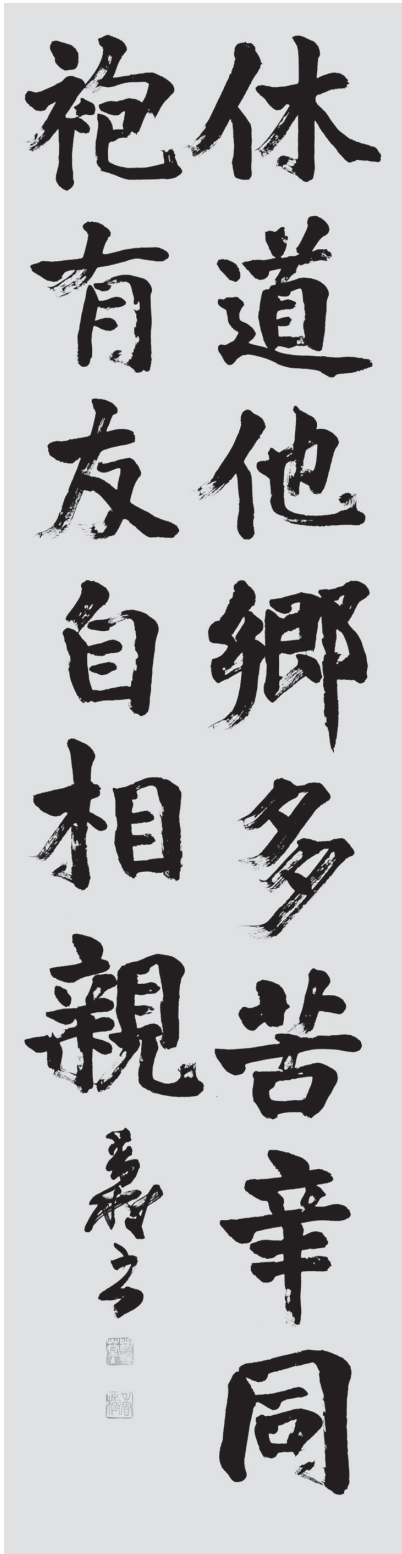 休道他鄉多苦辛同
袍有友自相親